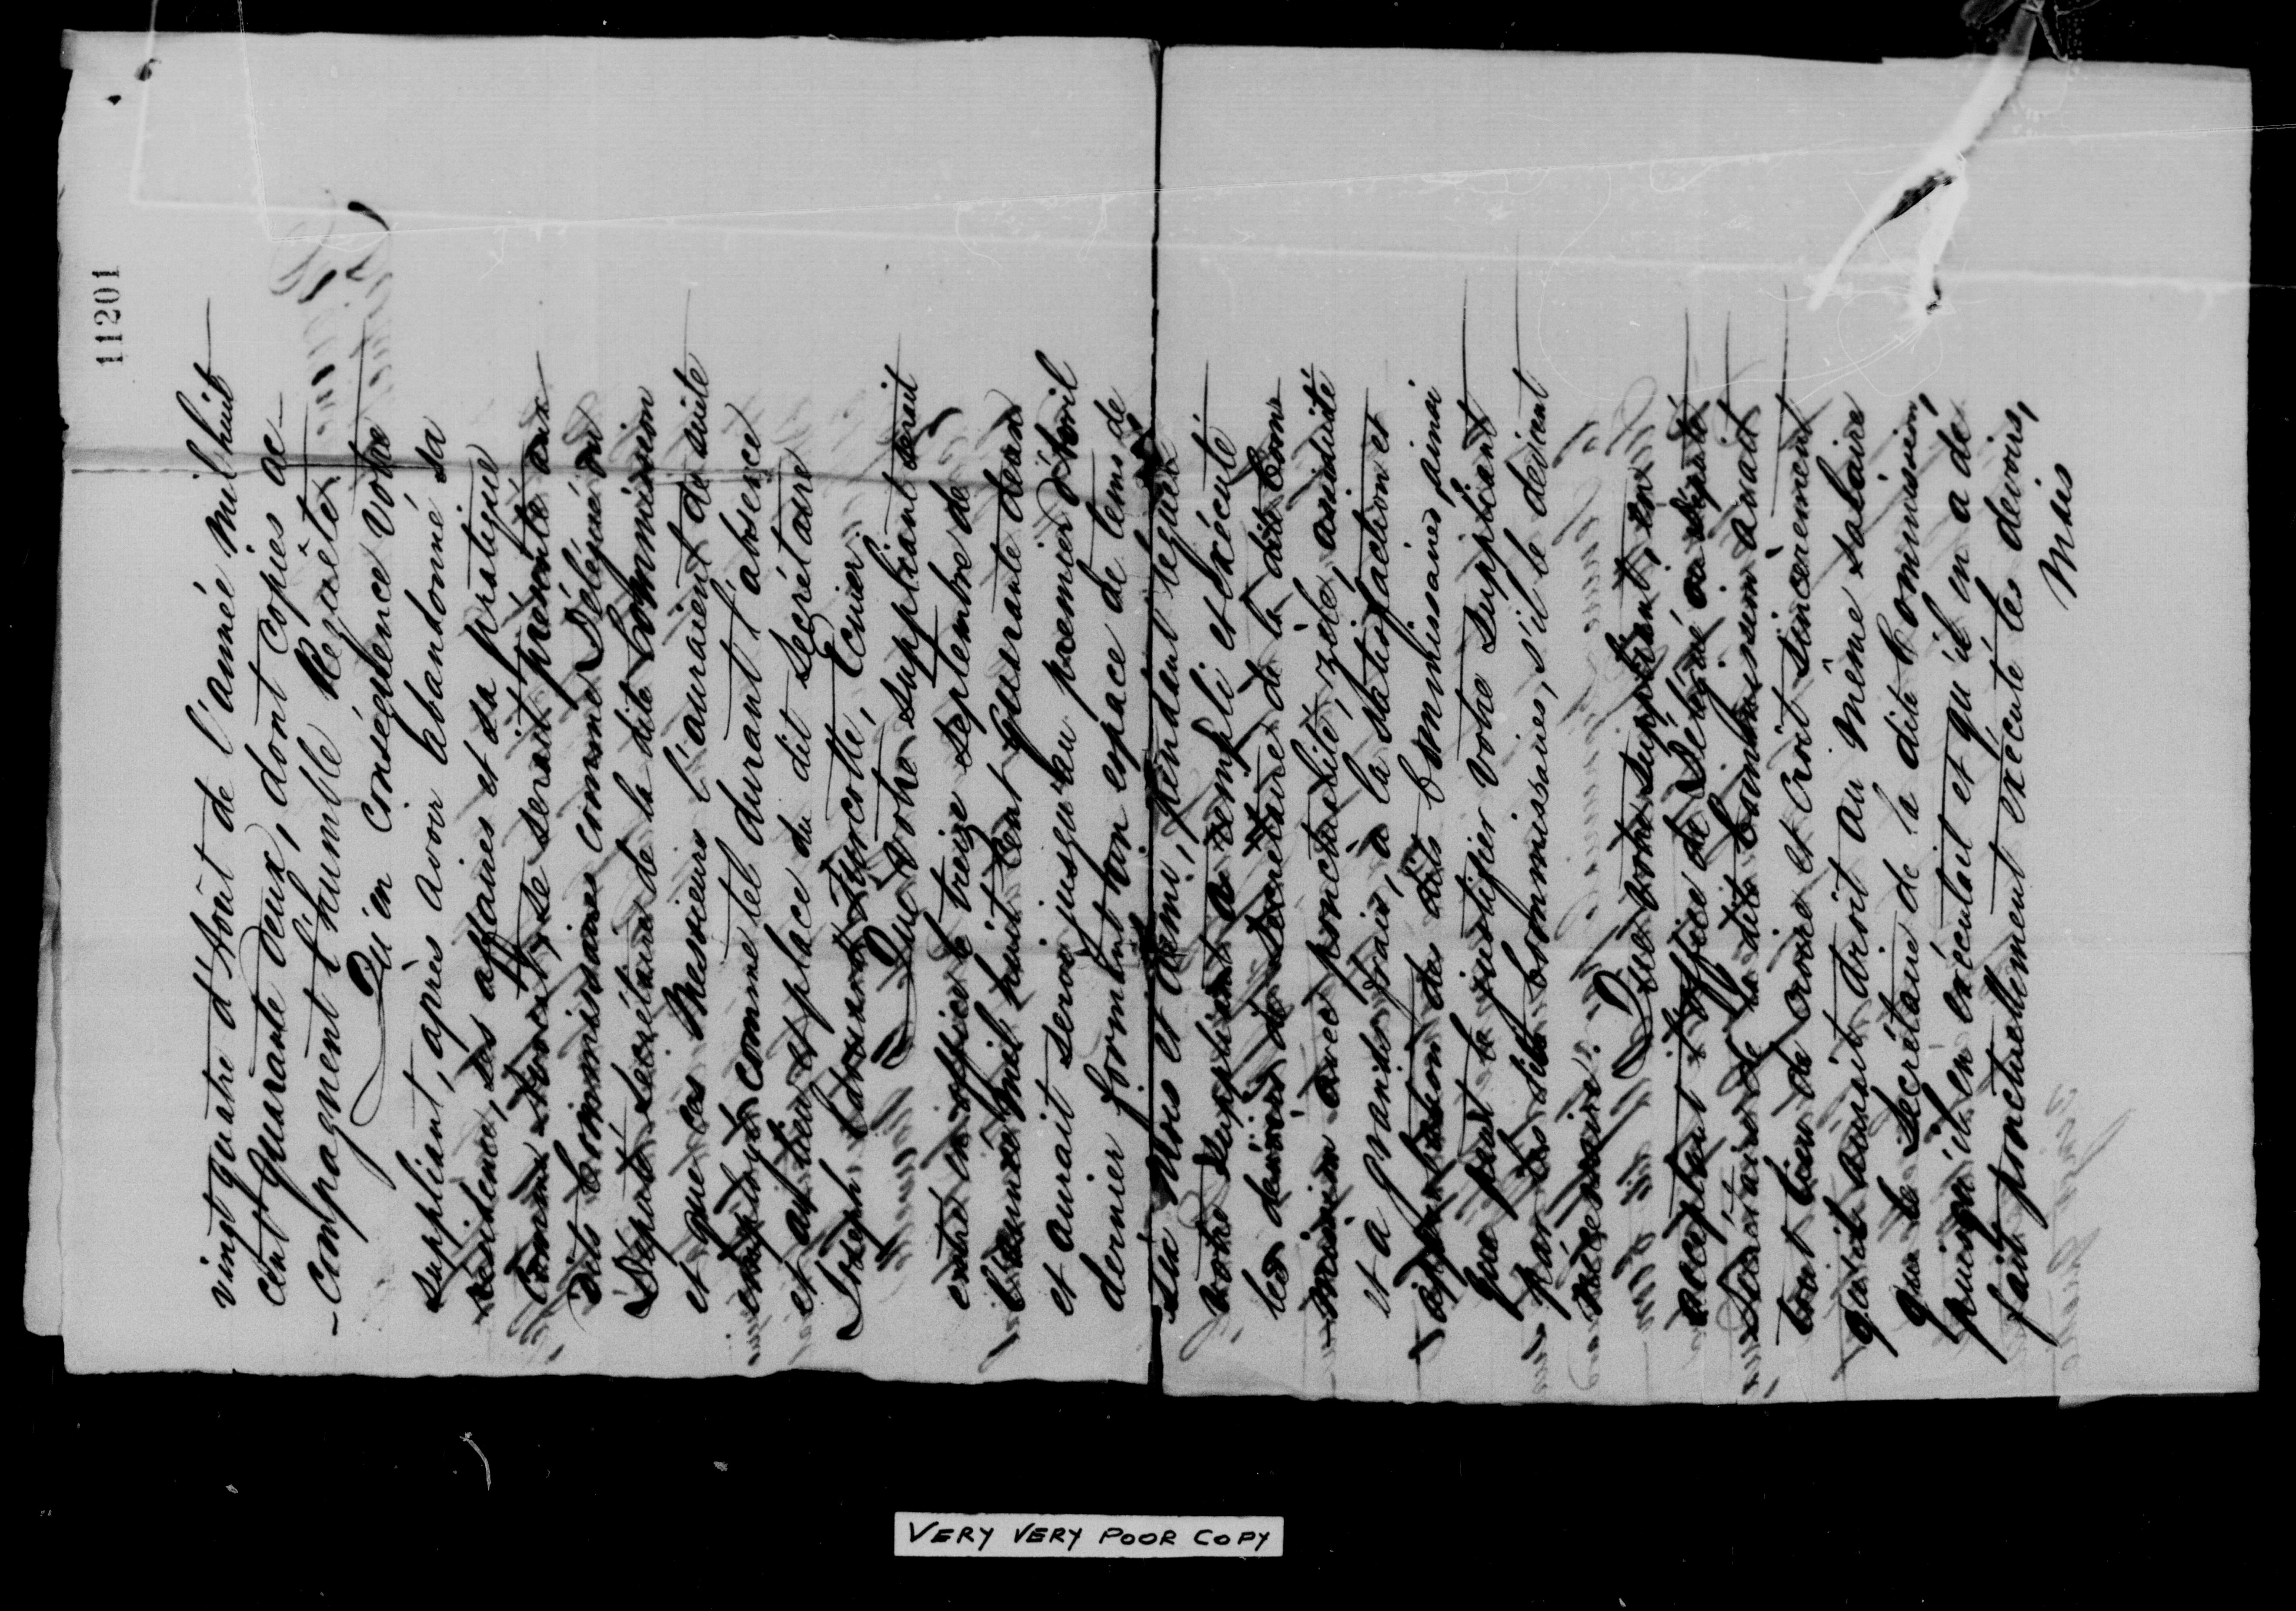 11201
vingt quatre d'Août de l'année mil huit
cent quarante deux, dont copies ac-
-compagnent l'humble Requête
Qu'en conséquence votre
suppliant, après avoir abandonné sa
résidence, ses affaires et sa pratique
comme avocat, se serait présenté aux
Dits Commissaires comme Délégué ou
Député Secrétaire de la dite Commission
et que ces Messieurs l'auraient de suite
employé comme tel durant l'absence
et au lieu et place du dit Secrétaire
Joseph Turcotte, Ecuier.
Que votre suppliant serait
entré en office le treize Septembre de
l'année mil huit cent quarante deux
et aurait servi jusqu'au premier d'Avril
dernier formant un espace de tems de
six mois et demi, pendant lequel
votre suppliant a rempli et exécuté
les devoirs de Secrétaire de la dite Com-
-mission avec ponctualité, zèle, assiduité
et à grands frais, à la satisfaction et
approbation des dits Commissaires, ainsi
que peut le justifier votre suppliant
par les dits Commissaires, s'il le devient
nécessaire.
Que votre suppliant, en
acceptant l'office de Délégué ou député
Secrétaire de la dite Commission avait
tout lieu de croire et croit sincèrement
qu'il aurait droit au même salaire
que le Secrétaire de la dite Commission,
puisqu'il en exécutait et qu'il en a de
fait ponctuellement exécuté les devoirs,
Mais
VERY VERY POOR COPY